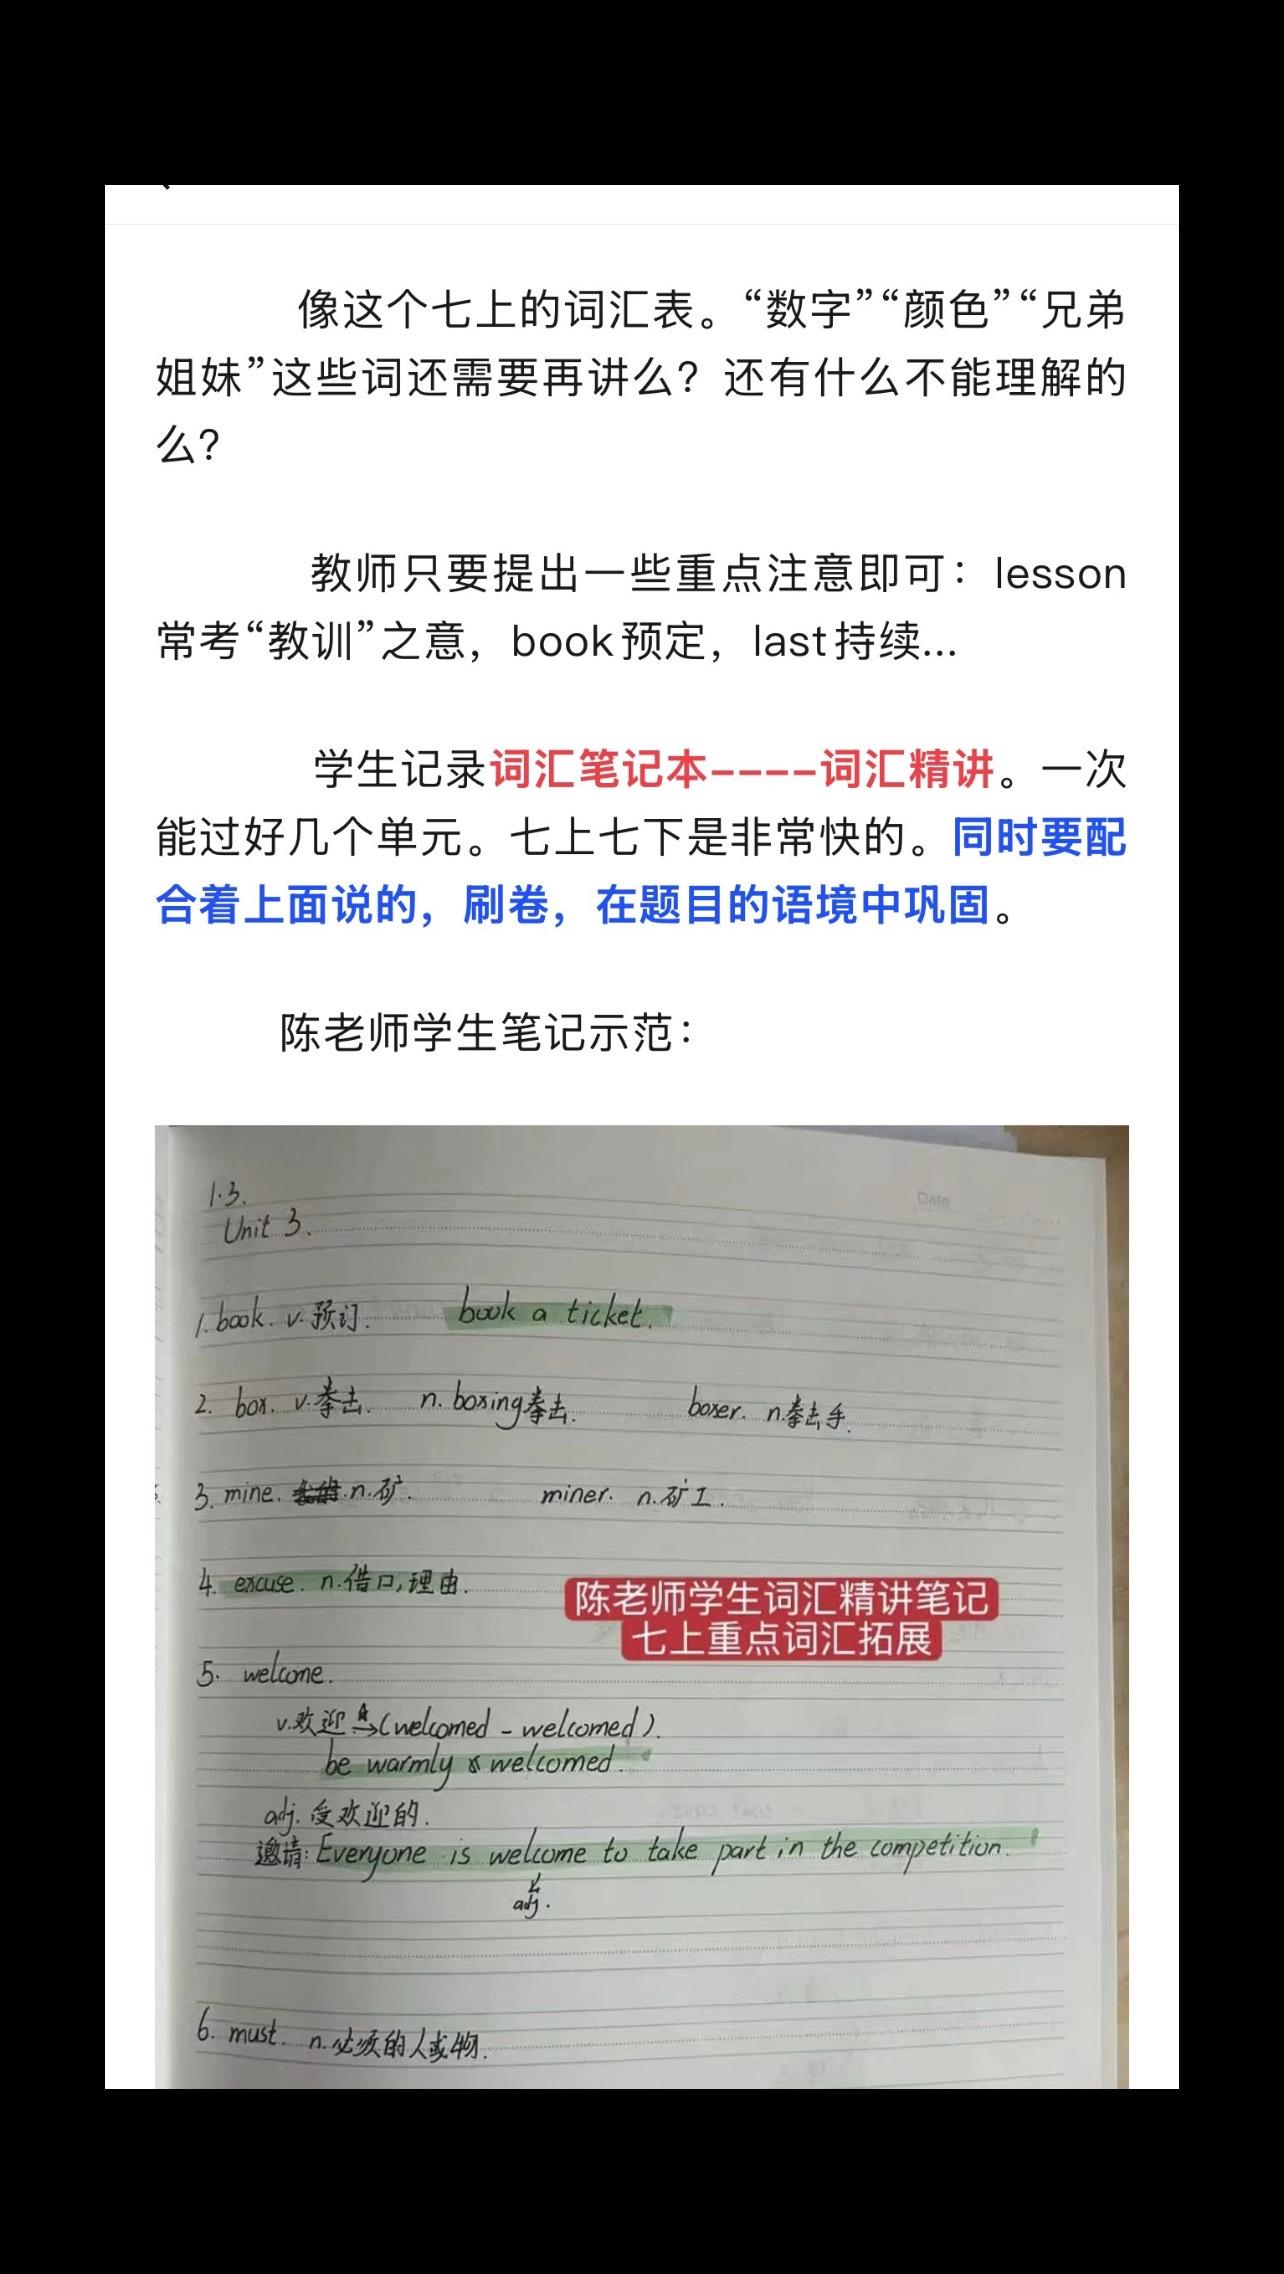 像这个七上的词汇表。“数字”“颜色”“兄弟
姐妹”这些词还需要再讲么？还有什么不能理解的
么？
教师只要提出一些重点注意即可：lesson
常考“教训”之意，book预定，last持续...
学生记录词汇笔记本----词汇精讲。一次
能过好几个单元。七上七下是非常快的。同时要配
合着上面说的，刷卷，在题目的语境中巩固。
陈老师学生笔记示范：
Date
1.3.
Unit 3.
1. book. v.预订. book a ticket.
2. box. v.拳击. n. boxing拳击. boxer. n.拳击手.
3. mine. n.矿. miner. n.矿工.
4. excuse. n.借口,理由.
陈老师学生词汇精讲笔记
七上重点词汇拓展
5. welcome.
v.欢迎→(welcomed - welcomed).
be warmly welcomed.
adj. 受欢迎的.
邀请: Everyone is welcome to take part in the competition.
adj.
6. must. n.必须的人或物.